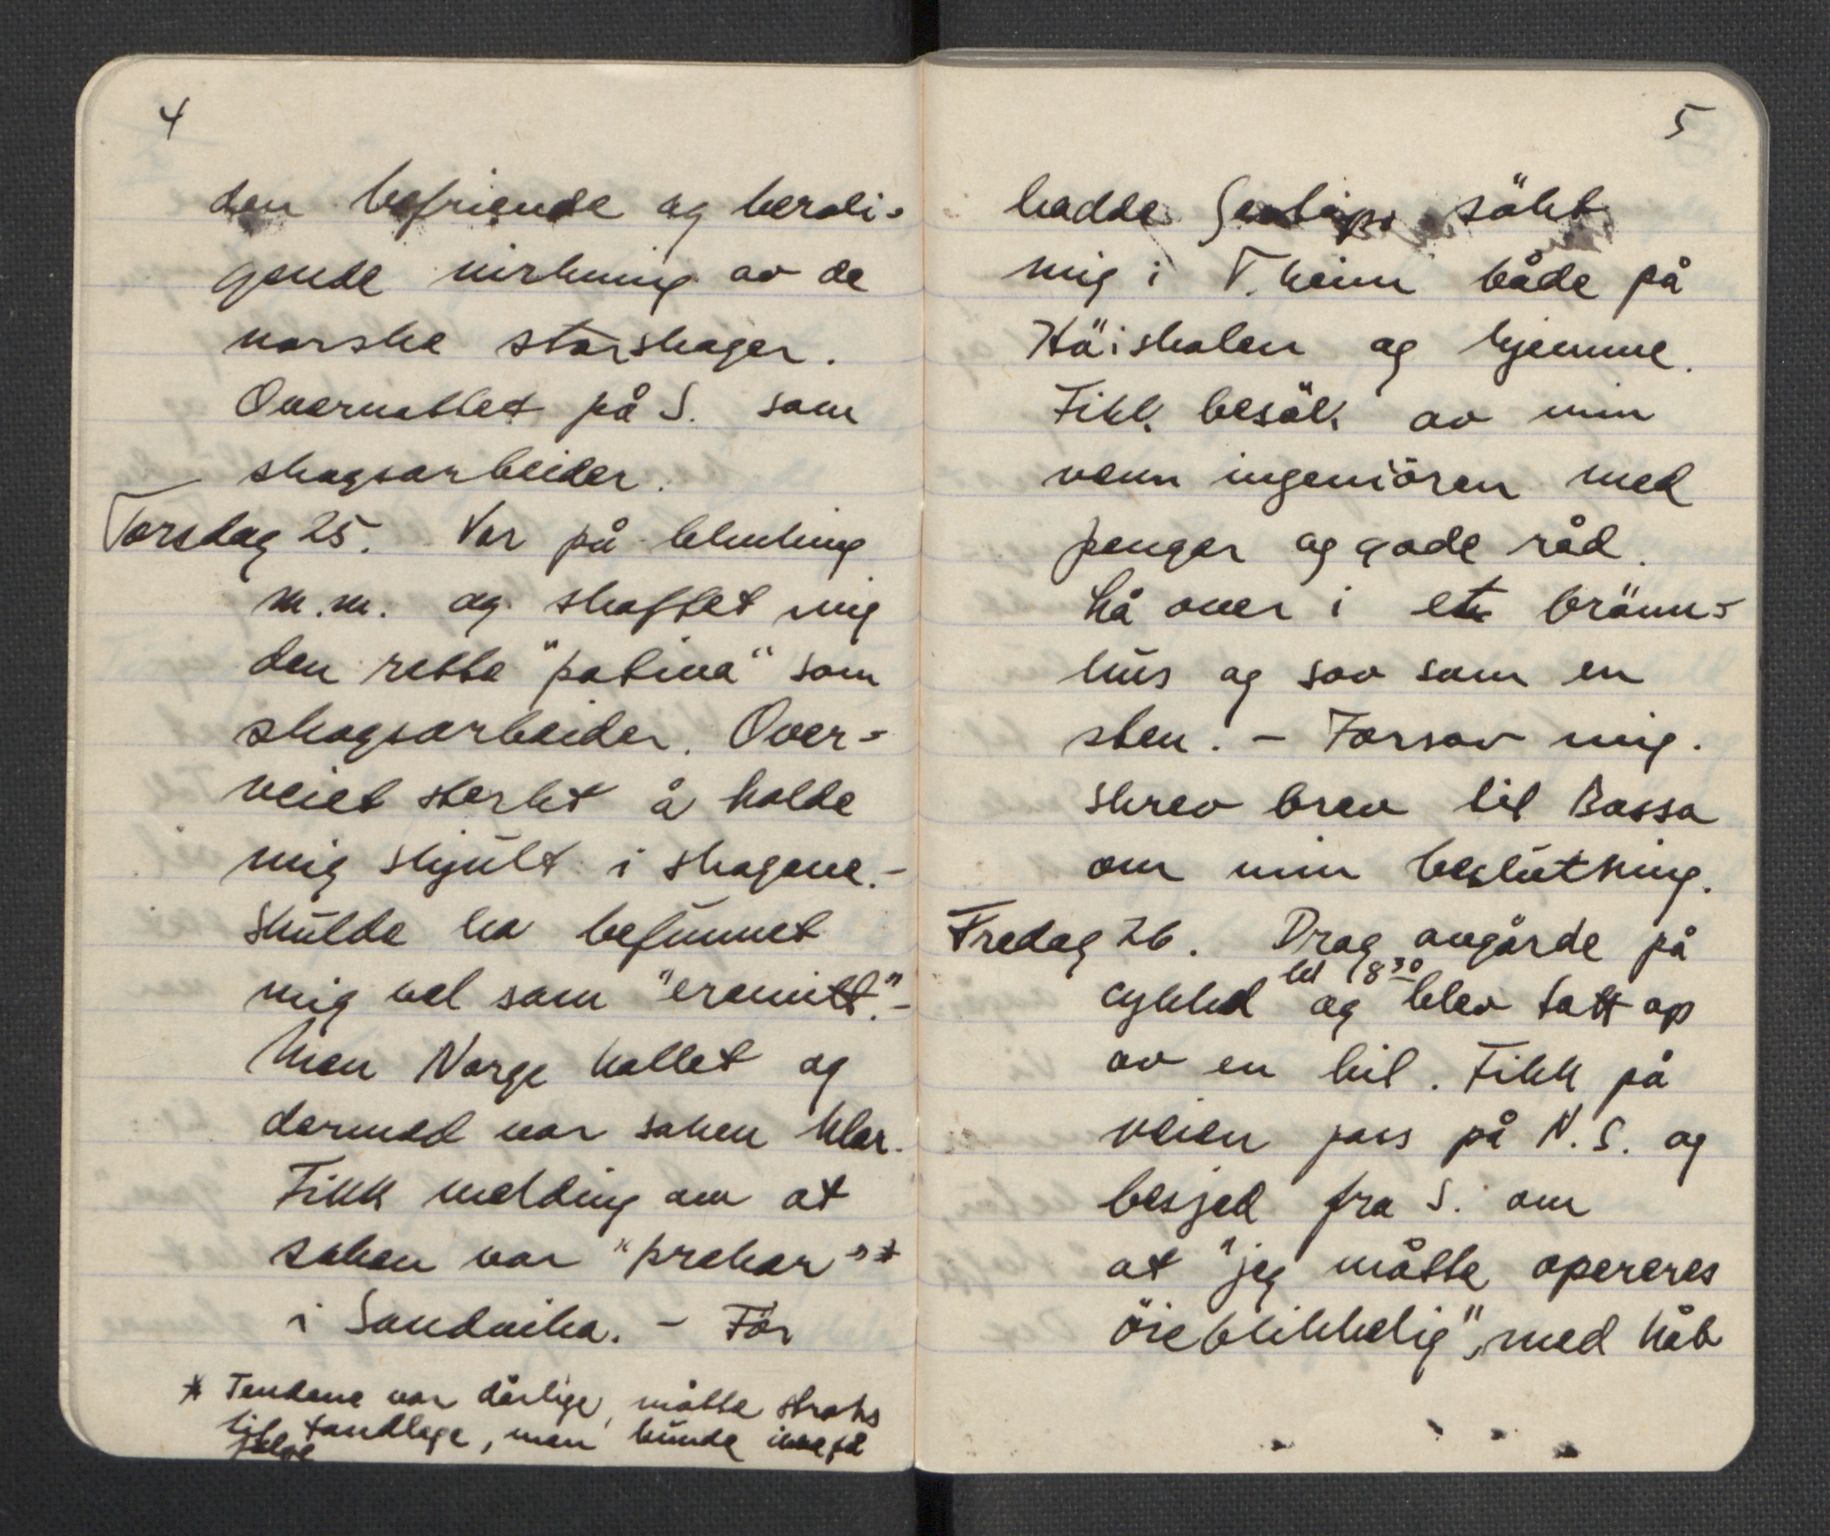 4
den befriende og beroli-
gende virkning av de
norske storskoger.
Overnattet på S. som
skogsarbeider.
Torsdag 25. Var på hhmling
m.m. og skaffet mig
den rette "patina" som
skogsarbeider. Over-
veiet sterkt å holde
mig skjult i skogene.-
Skulde ha befunnet
mig vel som "eremitt".-
Men Norge kallet og
dermed var saken klar.
Fikk melding om at
saken var "prekær"*
i Sandvika. - Før
* Tendene var dårlige, måtte straks
til tandlege, men kunde ikke få
følge
5
hadde Gestapo søkt
mig i T.heim både på
Høiskolen og hjemme.
Fikk besøk av min
venn ingeniøren med
penger og gode råd.
Lå over i et brönn-
hus og sov som en
sten. - Forsov mig.
Skrev brev til Bassa
om min beslutning.
Fredag 26. Drog avgårde på
kl 8³⁰
cykkel og blev tatt op
av en bil. Fikk på
veien pass på N.S. og
besjed fra S. om
at "jeg måtte opereres
öieblikkelig", med håb